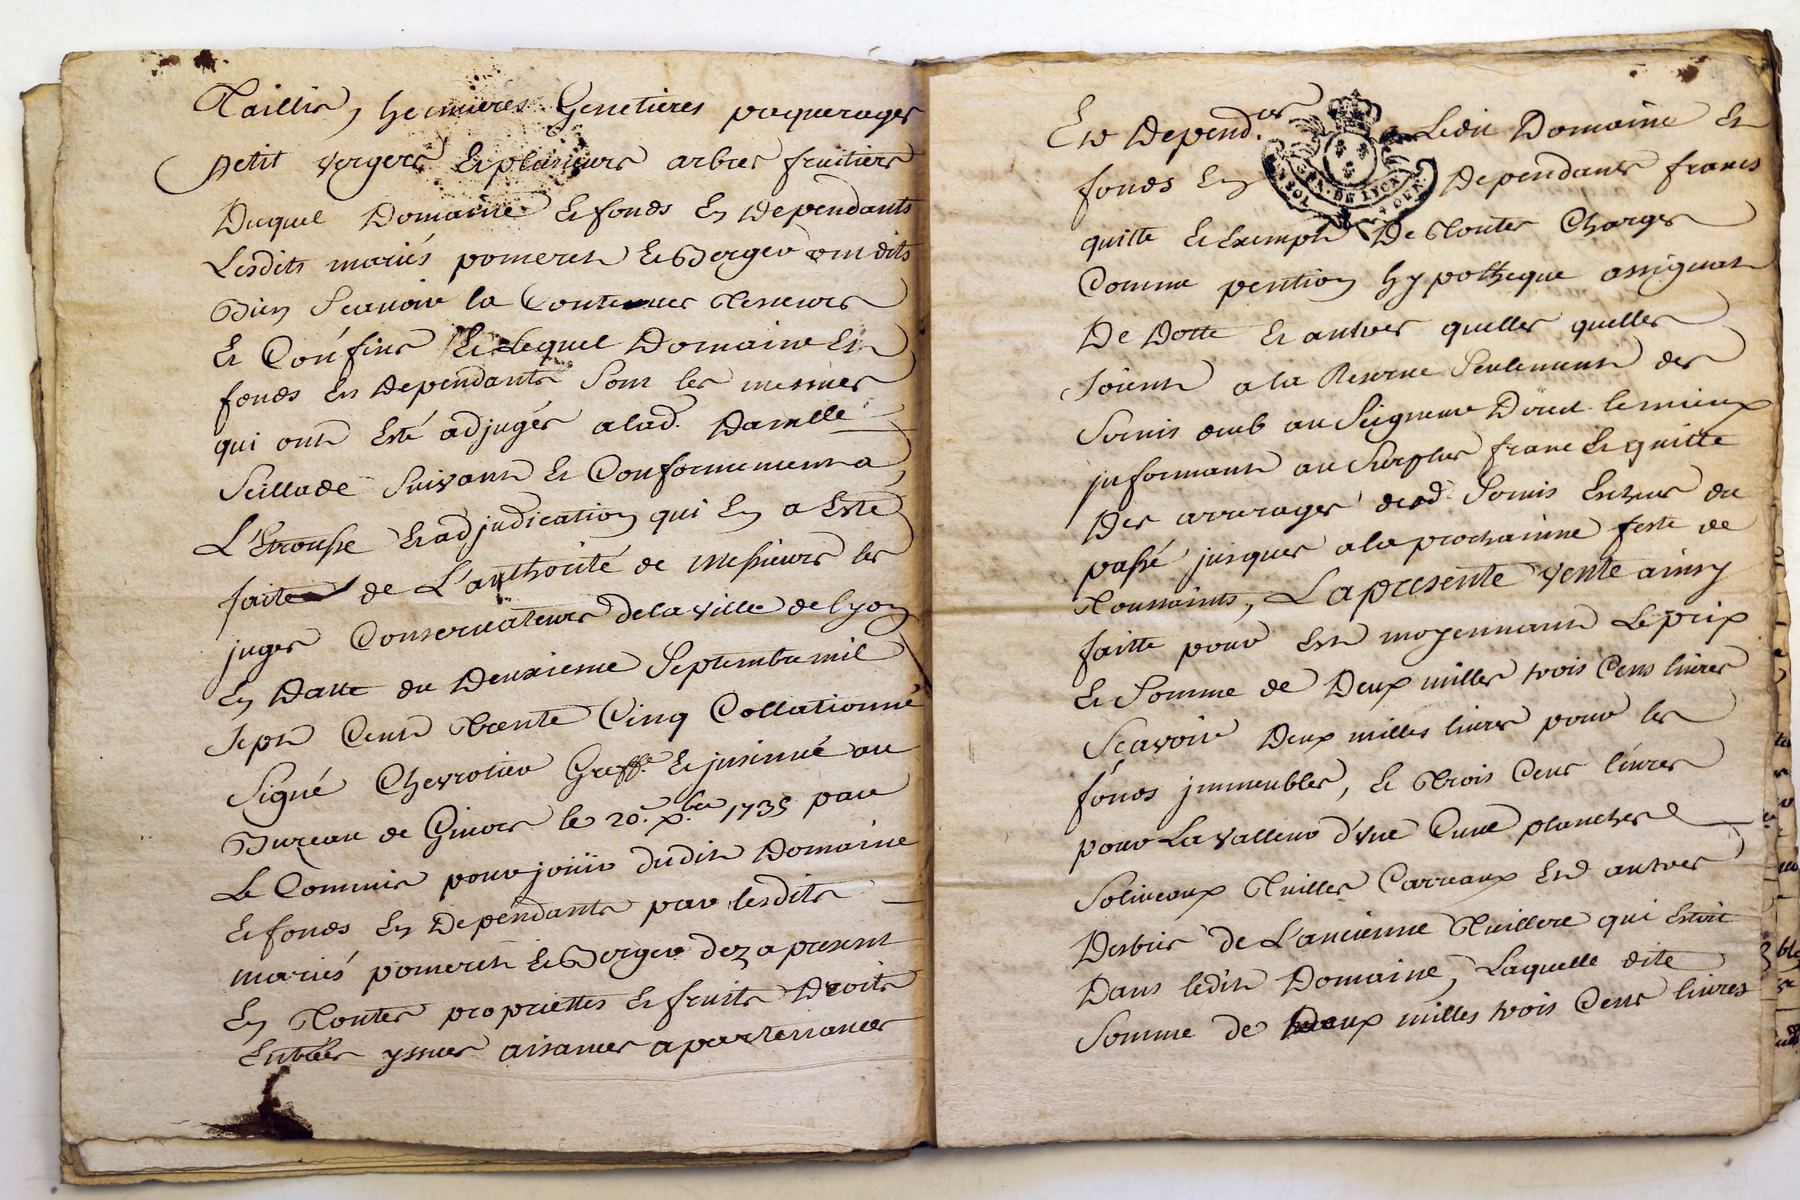 Taillis, hermieres Genetieres paquerages
petit vergers & plusieurs arbres fruitiers
Duquel Domaine & fonds En Dependants
Lesdits mariés pomeret & Berger ont dits
Bien Scavoir la Contenues Teneurs
& Confins & Lequel Domaine Et
fonds En dependants Sont les mesmes
qui ont Esté adjugés a lad. Damlle
Seillade Suivant & Conformement a
L'Etrousse & adjudication qui En a Esté
faite de L'authorité de messieurs les
juges Conservateurs de la ville de Lyon
En Datte du Deuxieme Septembre mil
Sept Cent Trente Cinq Collationné
Signé Chevrotier Greffr. & jnsinué au
Bureau de Givors le 20e. xbre 1735 par
Le Commis pour jouir dudit Domaine
& fonds En Dependants par lesdits
mariés pomeret & Berger dez a present
En Toutes propriettes & fruits Droits
Entrées yssues aisances apartenances
Et Depend.ces Ledit Domaine Et
fonds En Dependants francs
GEN. DE LYON
quitte & Exempt De Toutes Charges
Comme pention hypotheque assignat
De Dotte & autres quelles quelles
Soient a la Reserve Seulement des
Servis deub au Seigneur Direct le mieux
jnformant au Surplus franc & quitte
Des arrerages desd. Servis Escheus du
passé jusques a la prochainne feste de
Toussaints, La presente vente ainsy
faitte pour Et moyennant Le prix
& Somme de Deux milles trois Cens livres
Scavoir Deux milles livres pour les
fonds jmmeubles, & Trois Cens livres
pour La valleur d'une Cuve planches
Soliveaux Tuilles Carreaux Et autres
Debris de L'ancienne Tuillere qui Estoit
Dans ledit Domaine, Laquelle dite
Somme de Deux milles trois Cens livres